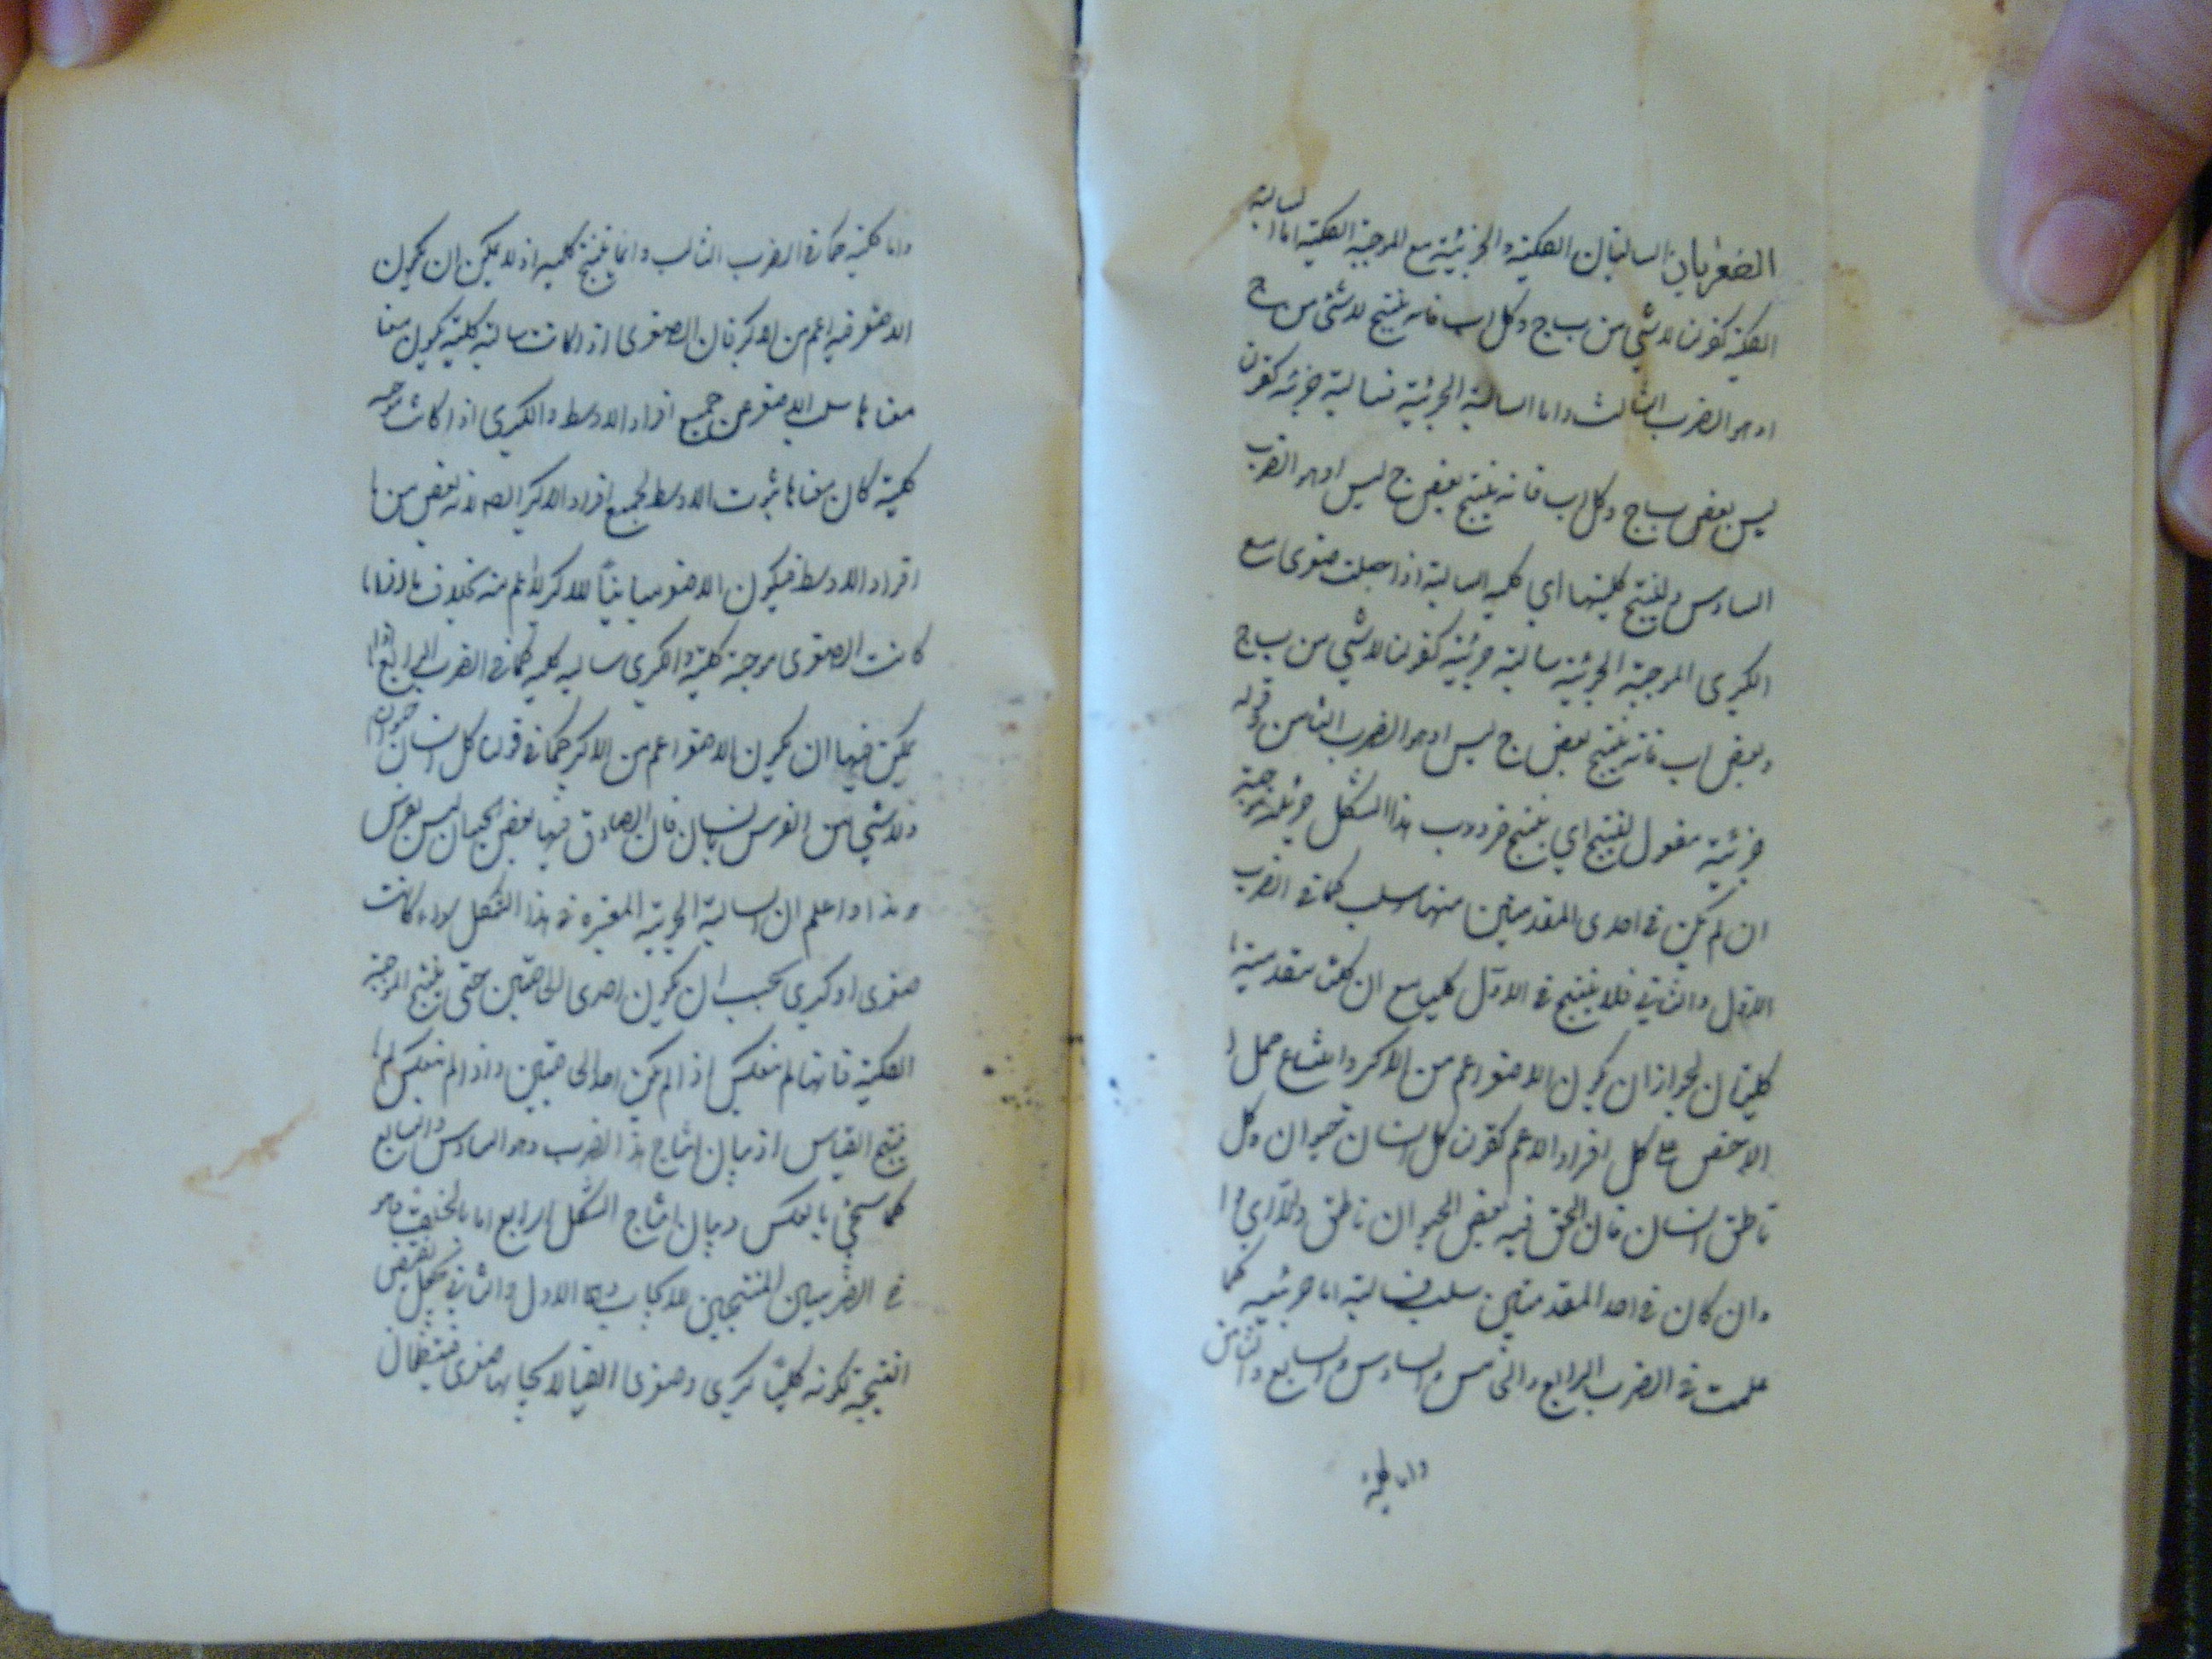 الصغريان السالبتان الكلية والجزئية مع الموجبة الكلية اما السالبة
الكلية كقولنا لا شيء من ب ج وكل ا ب فانه ينتج لا شيء من ج
ا وهو الضرب الثالث واما السالبة الجزئية فسالبة جزئية كقولنا
ليس بعض ب ج وكل ا ب فانه ينتج بعض ج ليس ا وهو الضرب
السادس وينتج كليتها اي كلية السالبة اذا جعلت صغرى مع
الكبرى الموجبة الجزئية سالبة جزئية كقولنا لا شيء من ب ج
وبعض ا ب فانه ينتج بعض ج ليس ا وهو الضرب الثامن قوله
جزئية مفعول لينتج اي ينتج ضروب هذا الشكل جزئية موجبة
ان لم يكن في احدى المقدمتين منها سلب كما في الضرب
الاول والثاني فلا ينتج في الاول كليا مع ان كلتا مقدمتيه
كليتان لجواز ان يكون الاصغر اعم من الاكبر وامتناع حمل
الاخص على كل افراد الاعم كقولنا كل انسان حيوان وكل
ناطق انسان فان الحق فيه بعض الحيوان ناطق
وان كان في احد المقدمتين سلب فسالبة اما جزئية كما
علمت في الضرب الرابع والخامس والسادس والسابع والثامن
واما كلية
واما كلية كما في الضرب الثالث وانما ينتج كلية اذ لا يمكن ان يكون
الاصغر فيه اعم من الاكبر فان الصغرى اذا كانت سالبة كلية يكون معنا
معناها سلب الاصغر عن جميع افراد الاوسط والكبرى اذا كانت موجبة
كلية كان معناها ثبوت الاوسط لجميع افراد الاكبر بعض من
افراد الاوسط فيكون الاصغر مباينا للاكبر لا اعم منه بخلاف ما اذا
كانت الصغرى موجبة كلية والكبرى سالبة كلية كما في الضرب الرابع
يمكن فيها ان يكون الاصغر اعم من الاكبر كما في قولنا كل انسان حيوان
ولا شيء من الفرس بانسان فان الصادق فيها بعض الحيوان ليس بفرس
هذا واعلم ان السالبة الجزئية المعتبرة في هذا الشكل سواء كانت
صغرى او كبرى يجب ان يكون احدى الخاصتين حتى ينتج الموجبة
الكلية فانها لم تنعكس اذا لم يكن احد الخاصتين واذا لم تنعكس لم
ينتج القياس اذ بيان انتاج هذا الضرب وهو السادس والسابع
كما سيجيء بالعكس وبيان انتاج الشكل الرابع اما بالخلف وهو
في الضربين المنتجين للايجاب وهما الاول والثاني يجعل نقيض
النتيجة لكونه كليا كبرى وصغرى القياس لايجابها صغرى فينتظمان